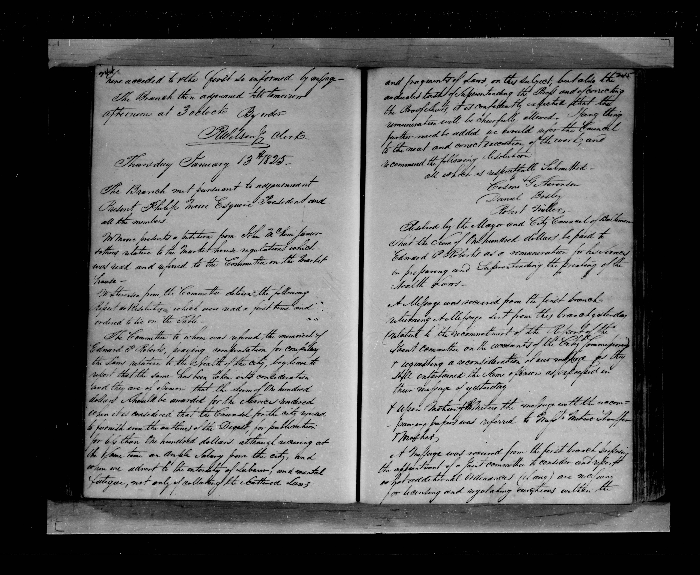 have acceded to & the first so informed by message —
The Branch then adjourned till tomorrow
afternoon at 3 oClock By order
Clerk
Thursday January 13th 1825.
The Branch met pursuant to adjournment
Present Philip Moore Esquire President and
all the members.
Mr Moore presents a petition from John McKim Junior
relative to the Market house regulations which
was read and referred to the Committee on the Market
house —
Mr Stevenson from the Committee delivered the following
Report and Resolution which were read a first time and
ordered to lie on the Table.
The Committee to whom was referred the memorial of
Edward P. Roberts, praying compensation for compiling
the Laws relative to the Health of the city, beg leave to
report that the same has been taken into consideration
and they are of opinion that the sum of One hundred
dollars should be awarded for the services rendered
when it is considered that the Counsel for the city
to furnish even the outlines of the Digest, for publication
for less than One hundred dollars although receiving at
the same time an ample Salary from the city, and
when we advert to the intensity of labour, and mental
fatigue, not only of collating the scattered Laws
245
and fragments of Laws on this subject, but also the
arduous task of superintending the Press and of correcting
the Proof sheets, it is confidently expected that the
remuneration will be cheerfully allowed. If any thing
further need be added we would refer the Council
to the neat and correct execution of the work, and
recommend the following Resolution
all which is respectfully Submitted —
Stevenson
Daniel Bosley
Robert Miller
Resolved by the Mayor and City Council of Baltimore
that the Sum of One hundred dollars be paid to
Edward P Roberts as a remuneration for his services
in preparing and Superintending the printing of the
Health Laws.
A Message was received from the first branch
returning a Message sent from this branch yesterday
relative to the recommitment of the Report of the
Joint committee on the accounts of the City Commissioners
& requesting a reconsideration of our message for they
still entertained the same opinion as expressed in
their message of yesterday
& When Motion of Mr the message with the accom-
panying papers was referred to Messrs
& Mosher,
A Message was received from the first branch proposing
the appointment of a joint committee to consider and report
what additional Ordinances (if any) are necessary
for licensing and regulating within the